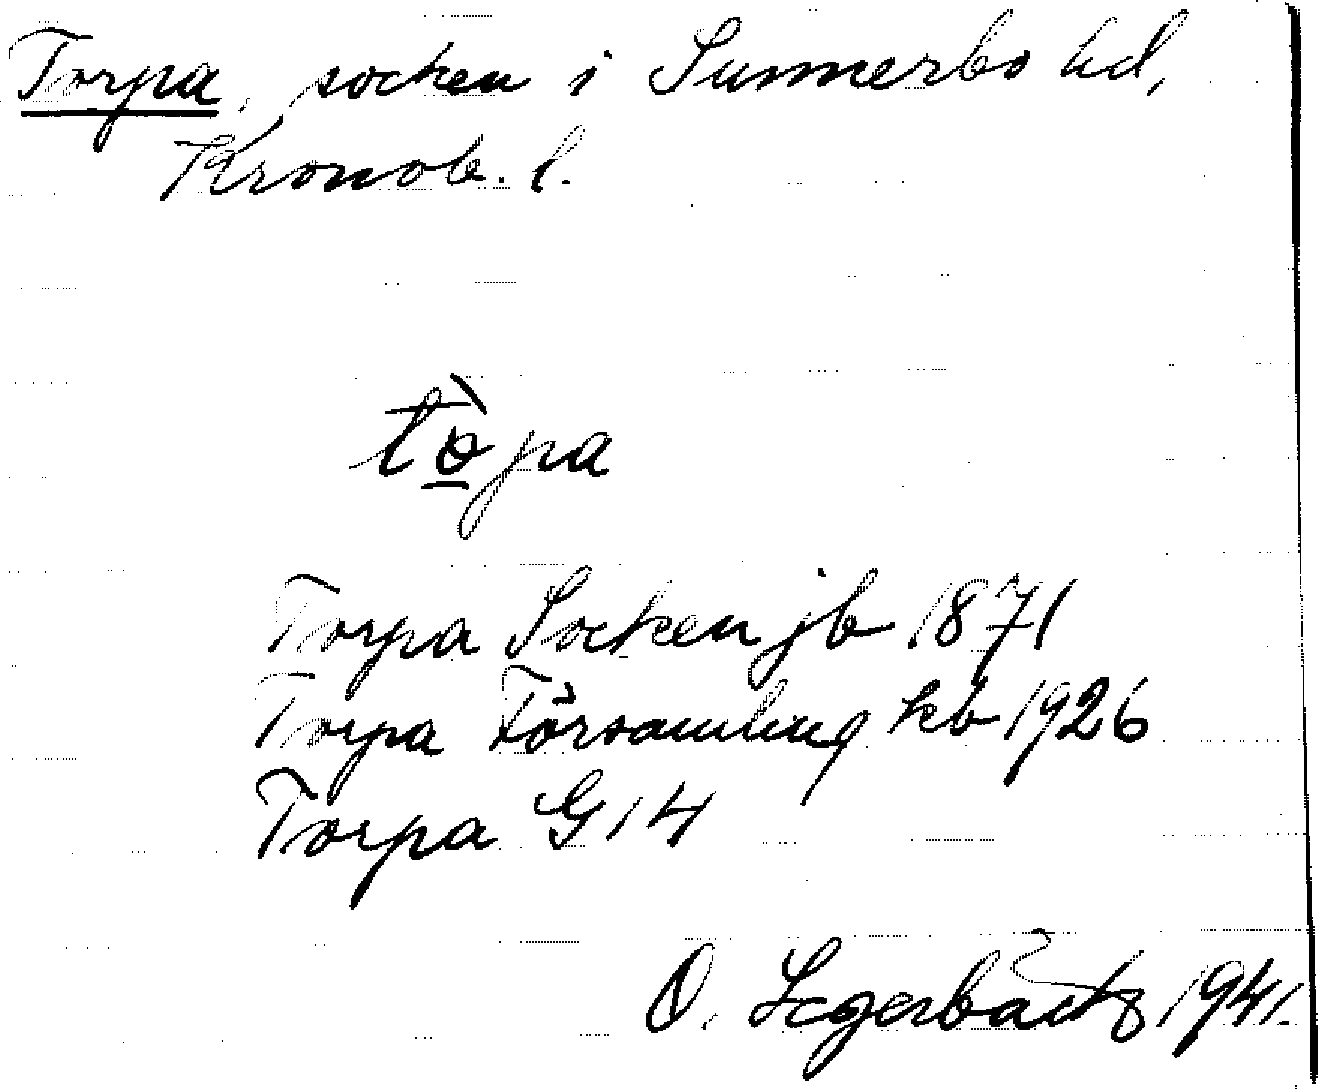 Torpa, socken i Sunnerbo hd,
Kronob. l.
tò̱pa
Torpa Socken jb 1871
Torpa Församling kb 1926
Torpa G 14
O. Segerbäck 1941.